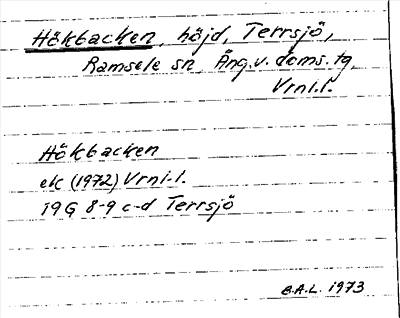 Hökbacken, höjd, Terrsjö,
Ramsele sn, Ång.v. doms. tg,
Vrnl.l.
Hökbacken
ek (1972) Vrnl.l.
19G 8-9 c-d Terrsjö
B.A.L. 1973